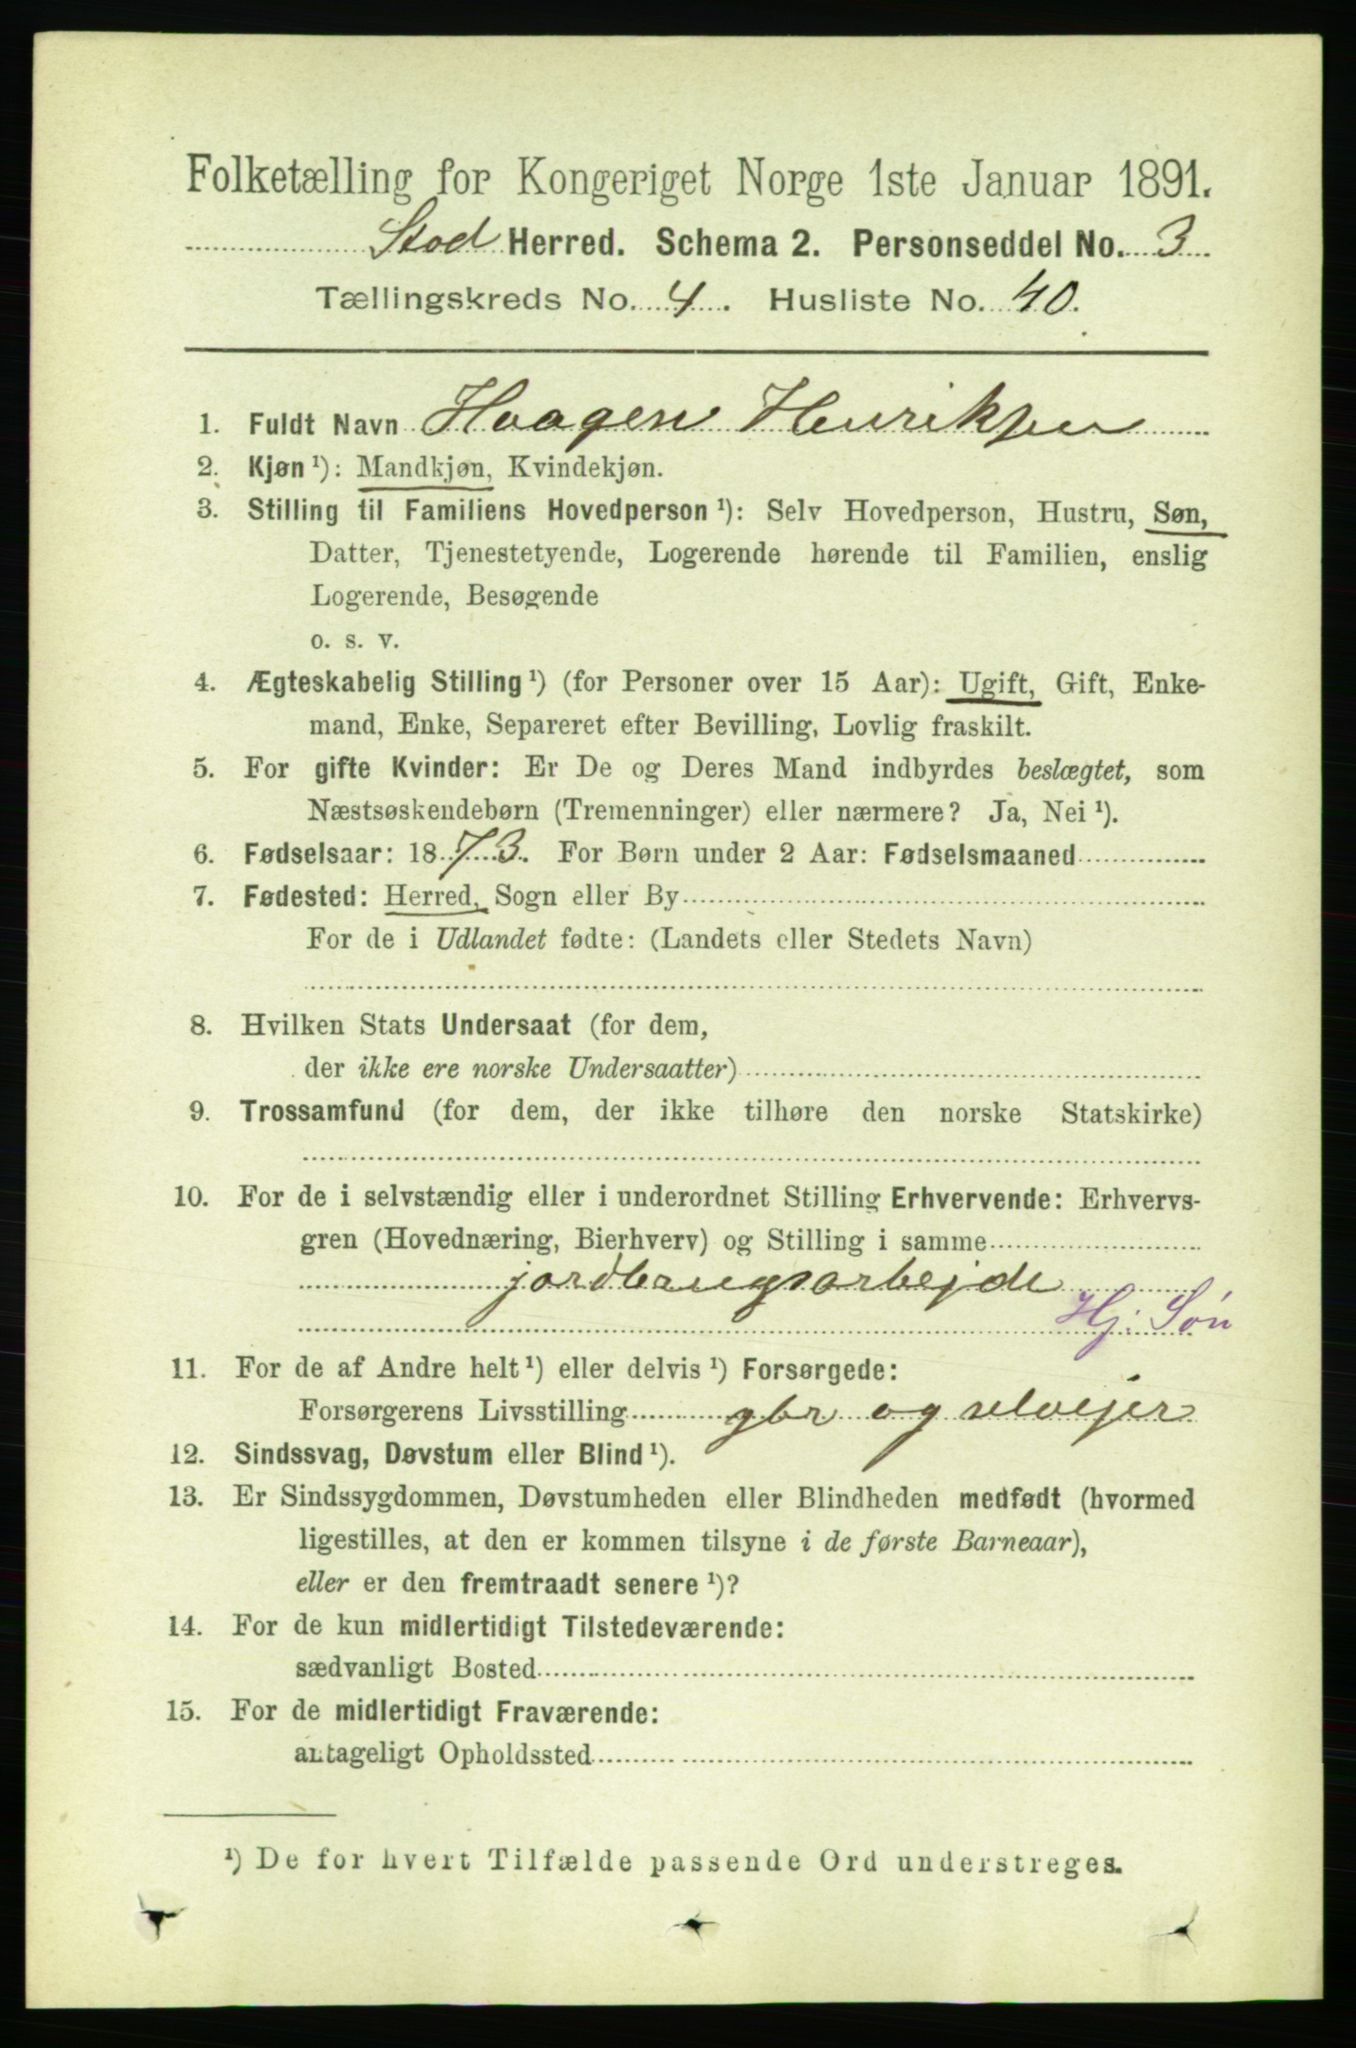 Folketælling for Kongeriget Norge 1ste Januar 1891.
Stod Herred. Schema 2. Personseddel No. 3
Tællingskreds No. 4. Husliste No. 40.
1. Fuldt Navn Haagen Henriksen
2. Kjøn ¹): Mandkjøn, Kvindekjøn.
3. Stilling til Familiens Hovedperson ¹): Selv Hovedperson, Hustru, Søn,
Datter, Tjenestetyende, Logerende hørende til Familien, enslig
Logerende, Besøgende
o. s. v.
4. Ægteskabelig Stilling ¹) (for Personer over 15 Aar): Ugift, Gift, Enke-
mand, Enke, Separeret efter Bevilling, Lovlig fraskilt.
5. For gifte Kvinder: Er De og Deres Mand indbyrdes beslægtet, som
Næstsøskendebørn (Tremenninger) eller nærmere? Ja, Nei ¹).
6. Fødselsaar: 1873. For Børn under 2 Aar: Fødselsmaaned
7. Fødested: Herred, Sogn eller By
For de i Udlandet fødte: (Landets eller Stedets Navn)
8. Hvilken Stats Undersaat (for dem,
der ikke ere norske Undersaatter)
9. Trossamfund (for dem, der ikke tilhøre den norske Statskirke)
10. For de i selvstændig eller i underordnet Stilling Erhvervende: Erhvervs-
gren (Hovednæring, Bierhverv) og Stilling i samme
jordbrugsarbejde
Hj. Søn
11. For de af Andre helt ¹) eller delvis ¹) Forsørgede:
Forsørgerens Livsstilling gbr og selvejer
12. Sindssvag, Døvstum eller Blind ¹).
13. Er Sindssygdommen, Døvstumheden eller Blindheden medfødt (hvormed
ligestilles, at den er kommen tilsyne i de første Barneaar),
eller er den fremtraadt senere ¹)?
14. For de kun midlertidigt Tilstedeværende:
sædvanligt Bosted
15. For de midlertidigt Fraværende:
antageligt Opholdssted
¹) De for hvert Tilfælde passende Ord understreges.